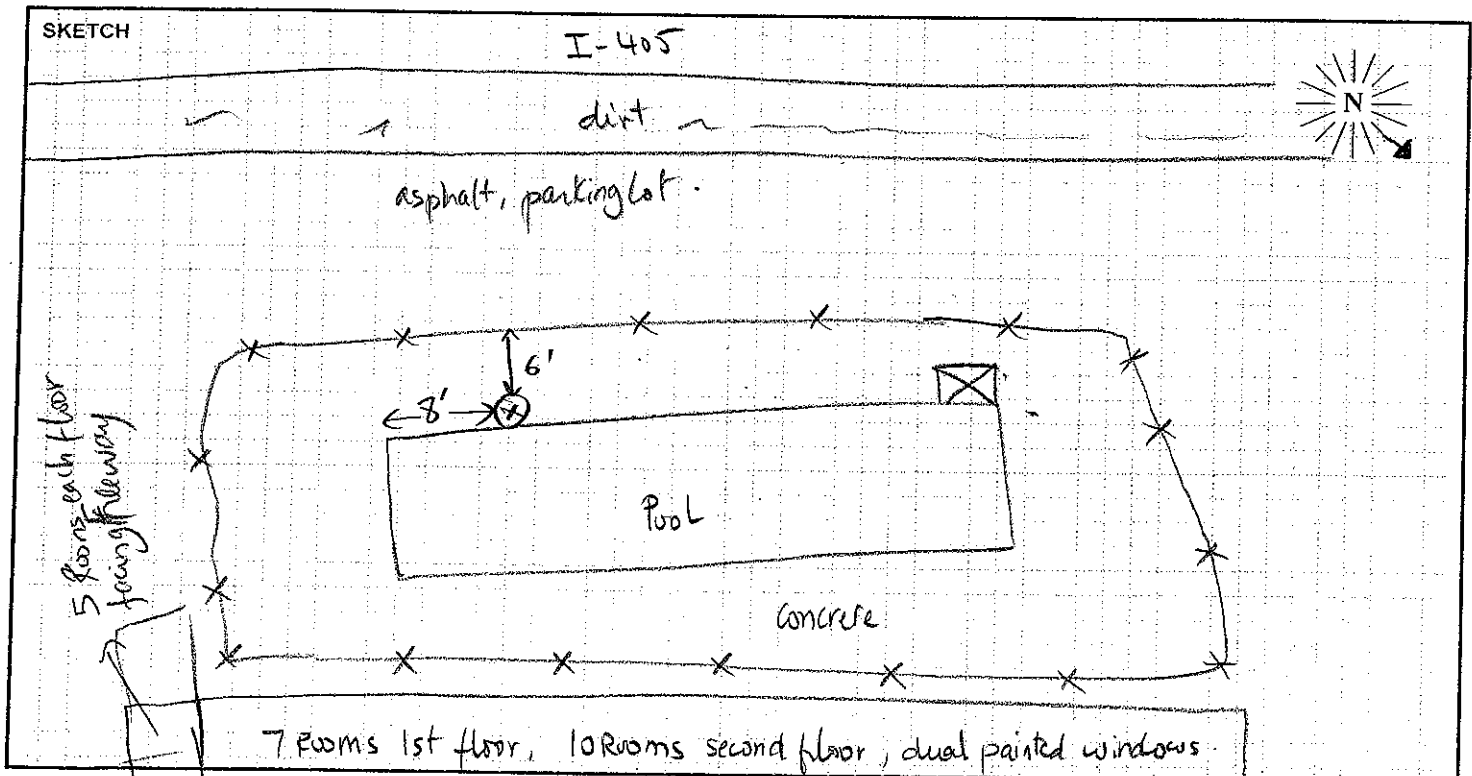 SKETCH
I-405
N
dirt
asphalt, parking lot.
6'
8'
5 Rooms each floor
facing freeway
Pool
Concrete
7 Rooms 1st floor, 10 Rooms second floor, dual painted windows